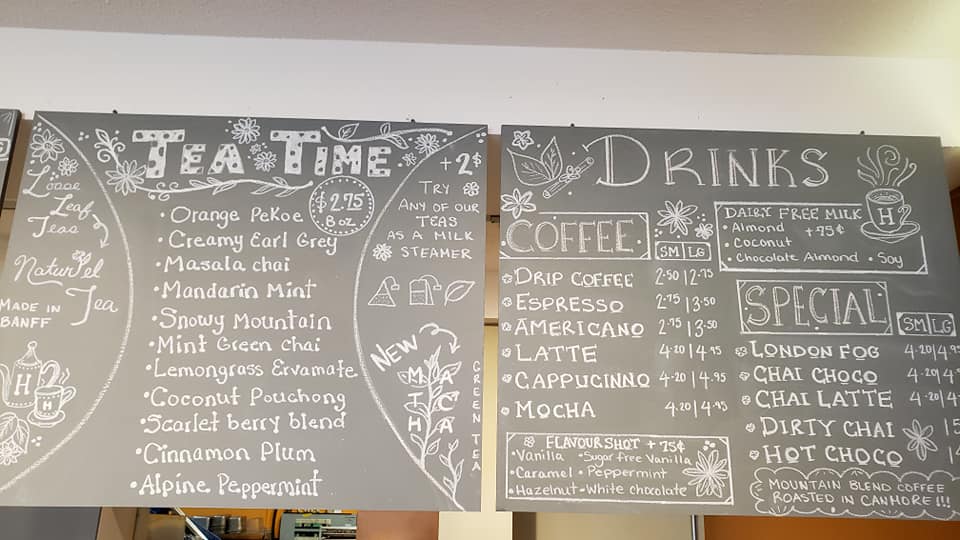 Loose
Leaf
Teas
Natur'el
Tea
MADE IN
BANFF
H
H
TEA TIME
$2.75
8oz.
• Orange Pekoe
• Creamy Earl Grey
• Masala chai
• Mandarin Mint
• Snowy Mountain
• Mint Green chai
• Lemongrass Ervamate
• Coconut Pouchong
• Scarlet berry blend
• Cinnamon Plum
• Alpine Peppermint
+2$
TRY
ANY OF OUR
TEAS
AS A MILK
STEAMER
NEW
MATCHA
GREEN TEA
DRINKS
COFFEE
SM|LG
DRIP COFFEE 2.50|2.75
ESPRESSO 2.75|3.50
AMERICANO 2.75|3.50
LATTE 4.20|4.95
CAPPUCINNO 4.20|4.95
MOCHA 4.20|4.95
FLAVOUR SHOT +75¢
• Vanilla • Sugar free Vanilla
• Caramel • Peppermint
• Hazelnut • White chocolate
DAIRY FREE MILK
• Almond +75¢
• Coconut
• Chocolate Almond • Soy
H
SPECIAL
SM|LG
LONDON FOG 4.20|4.95
CHAI CHOCO 4.20|4.9
CHAI LATTE 4.20|4
DIRTY CHAI
HOT CHOCO
MOUNTAIN BLEND COFFEE
ROASTED IN CANMORE!!!